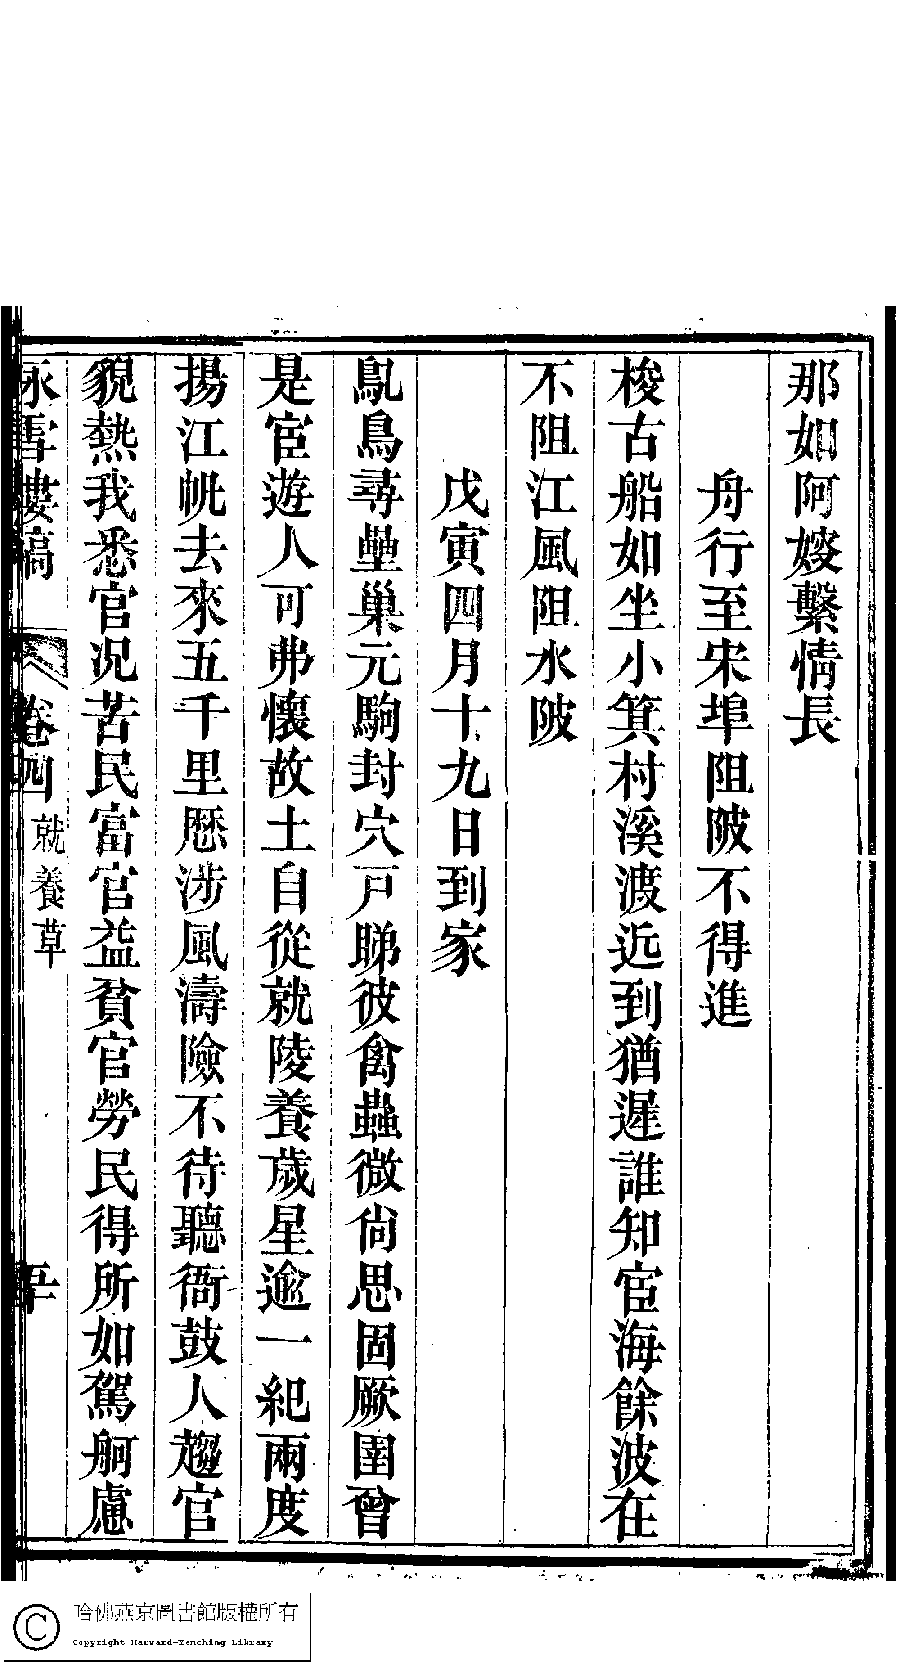 那如阿嫂繫情長
舟行至宋埠阻陂不得進
梭古船如坐小箕村溪渡近到猶遲誰知宦海餘波在
不阻江風阻水陂
戊寅四月十九日到家
鳦鳥尋壘巢元駒封穴戸睇彼禽蟲微尙思固厥圉曾
是宦遊人可弗懷故土自從就陵養歲星逾一紀兩度
揚江帆去來五千里厯涉風濤險不待聽衙鼓人趨官
貌熱我悉官况苦民富官益貧官勞民得所如駕舸慮
詠雪樓稿 卷四 就養草 五十
哈佛燕京圖書館版權所有
Copyright Harvard-Yenching Library